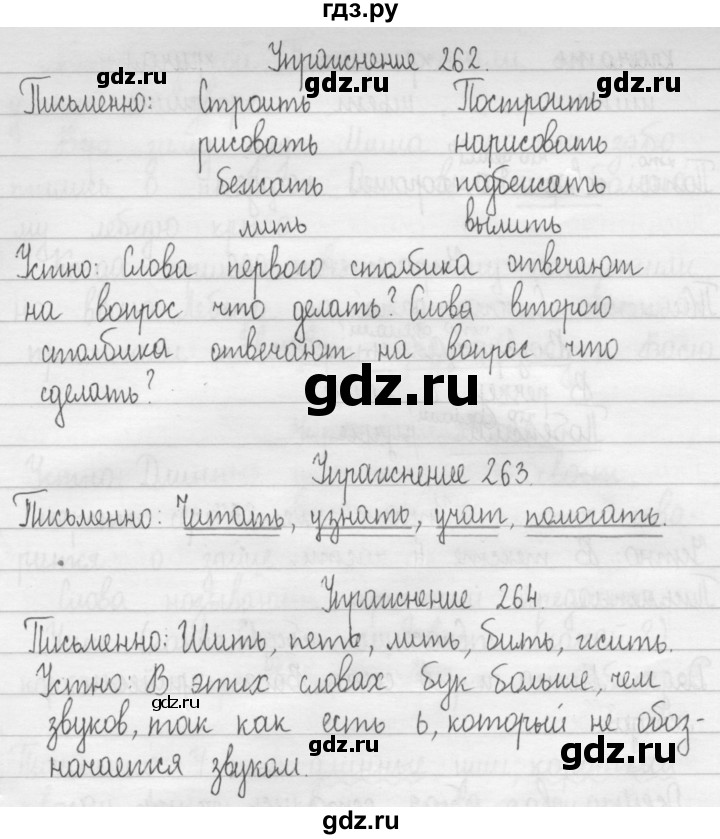 гдз.ру
Упражнение 262.
gdz.ru gdz.ru
Письменно: Строить Построить
рисовать нарисовать
бежать подбежать
лить вылить
Устно: Слова первого столбика отвечают
на вопрос что делать? Слова второго
столбика отвечают на вопрос что
сделать?
gdz.ru
Упражнение 263.
gdz.ru gdz.ru
Письменно: Читать, узнать, учат, помогать.
Упражнение 264.
gdz.ru
Письменно: Шить, петь, мать, быть, жить.
Устно: В этих словах бук больше, чем
gdz.ru
звуков, так как есть ь, который не обоз-
gdz.ru gdz.ru
начается звуком.
gdz.ru